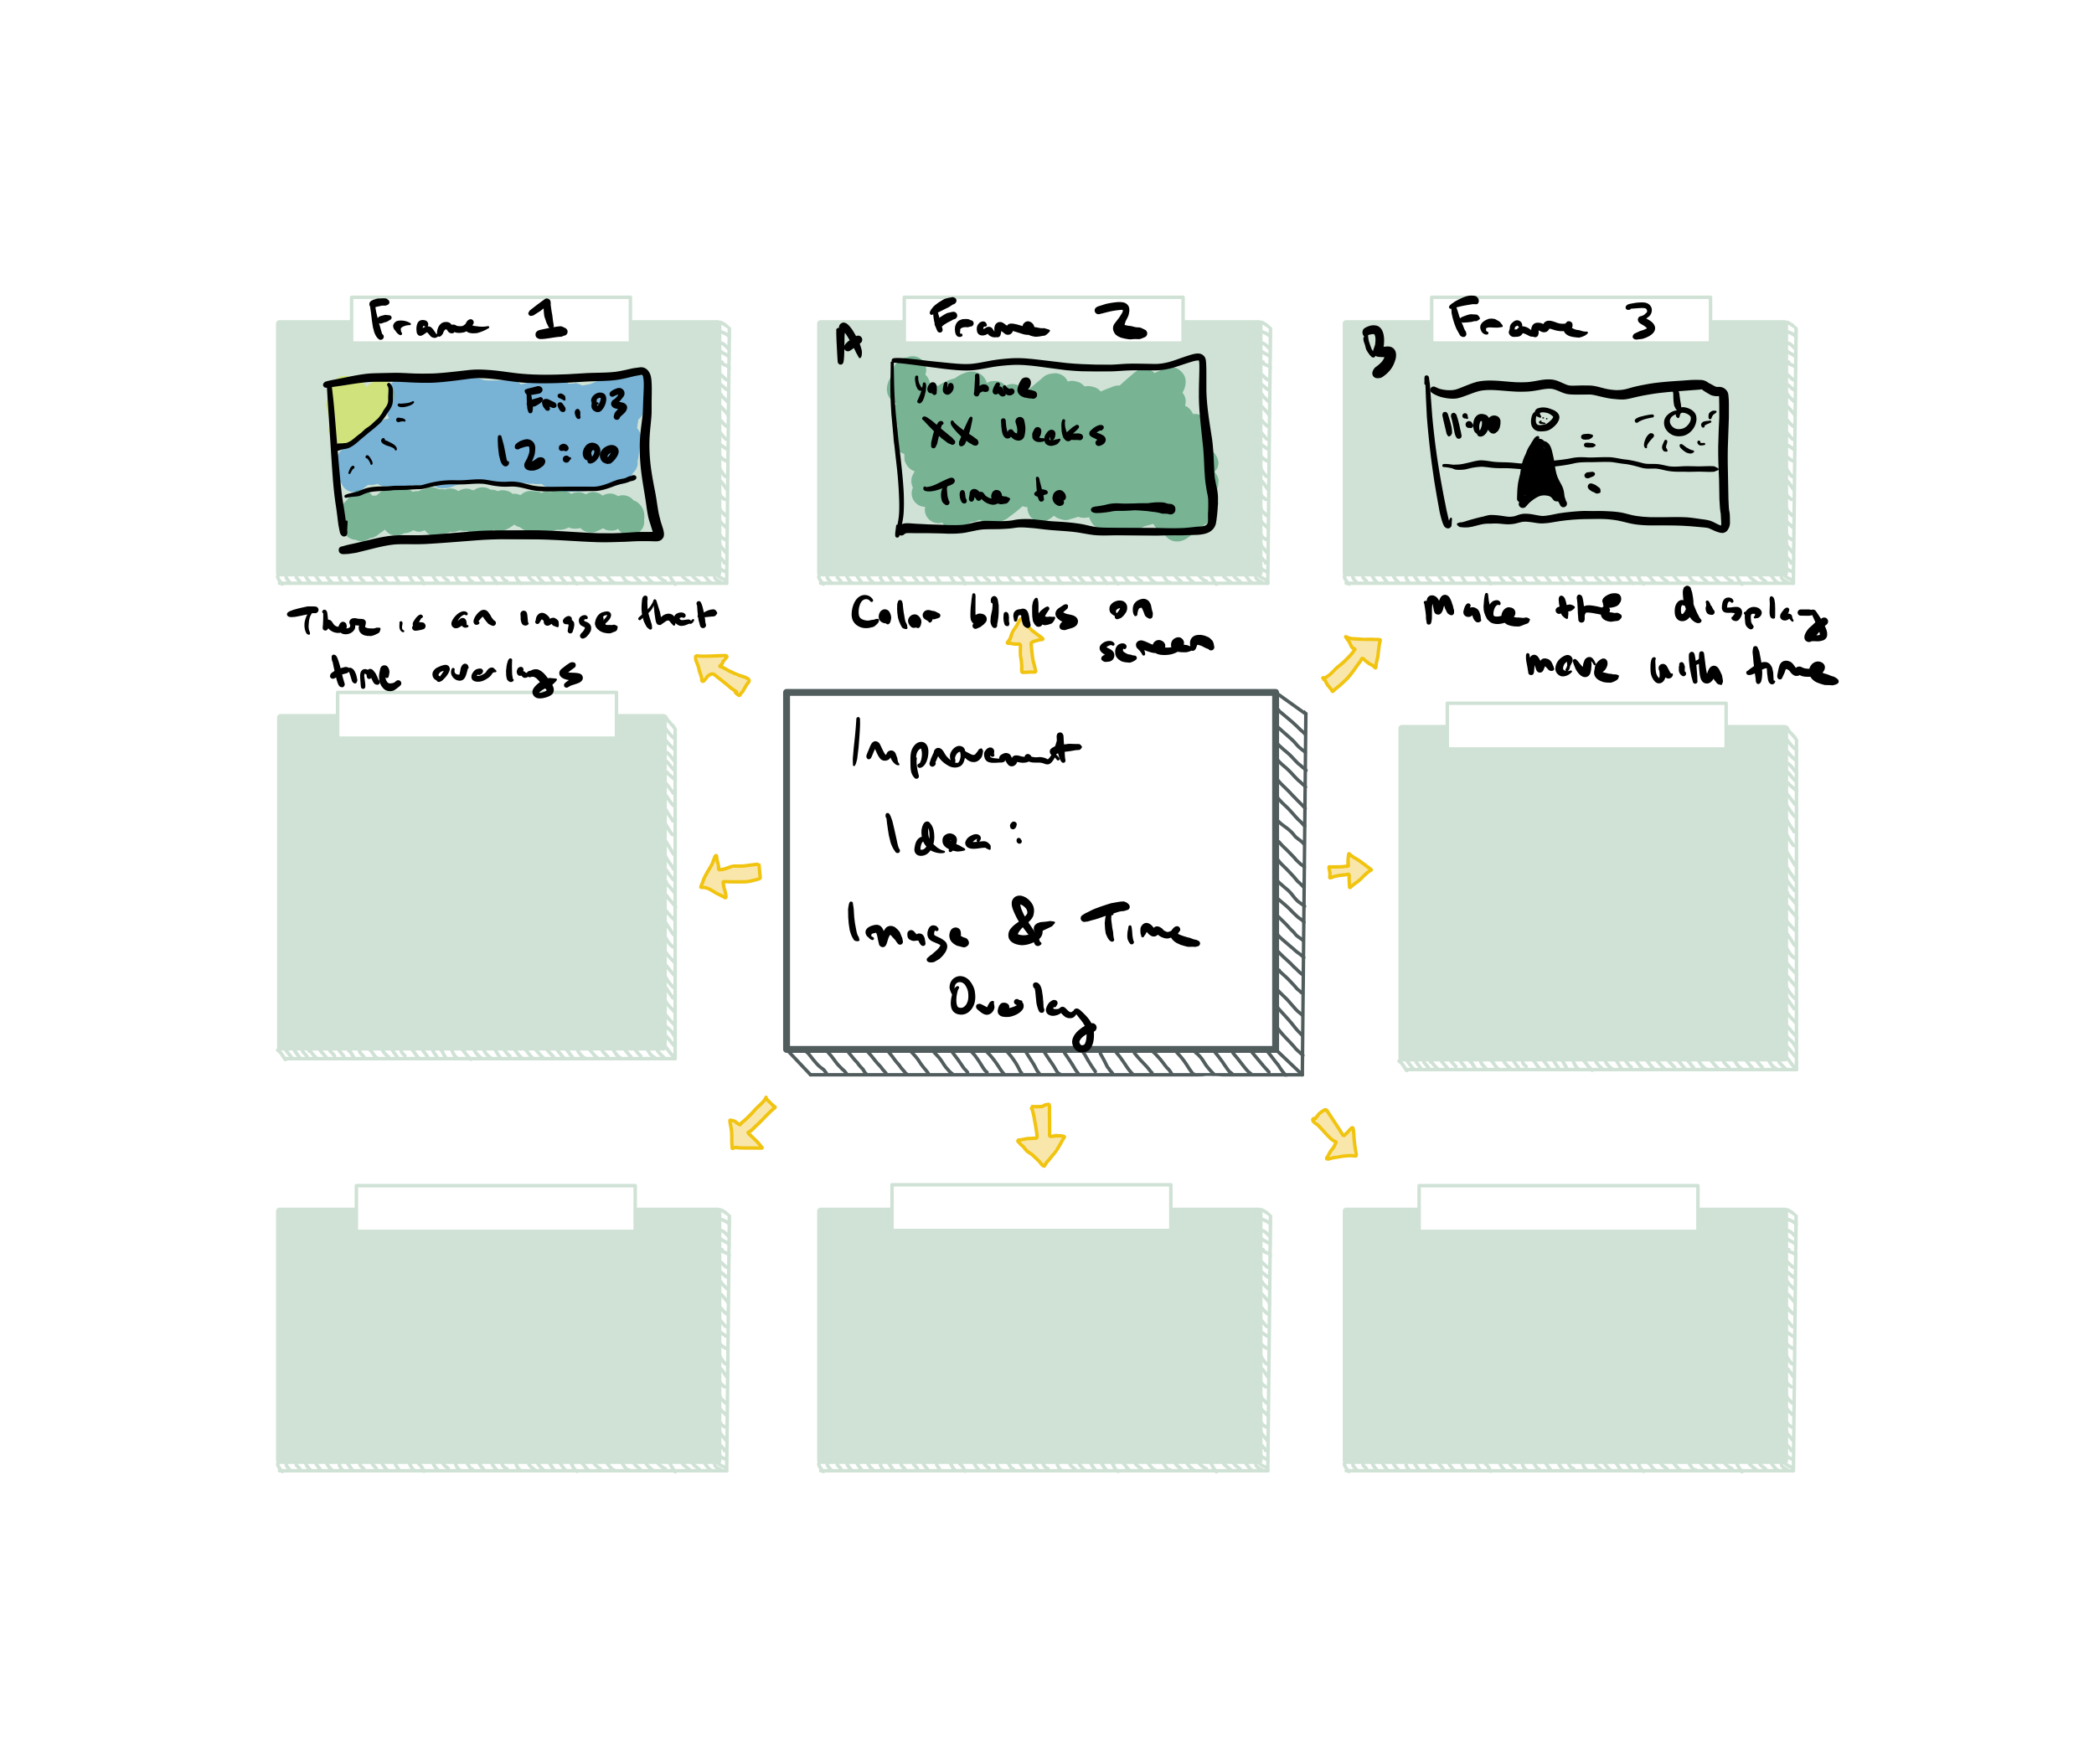 Frame 1
Fri: 03
12:00
There is an image that
the overlays
A
Frame 2
You have
XX weeks
Time to
Can blinks on
screen
B
Frame 3
11:00
Make the display
move with time
Imporant
Idea:
Image & Time
Overlay